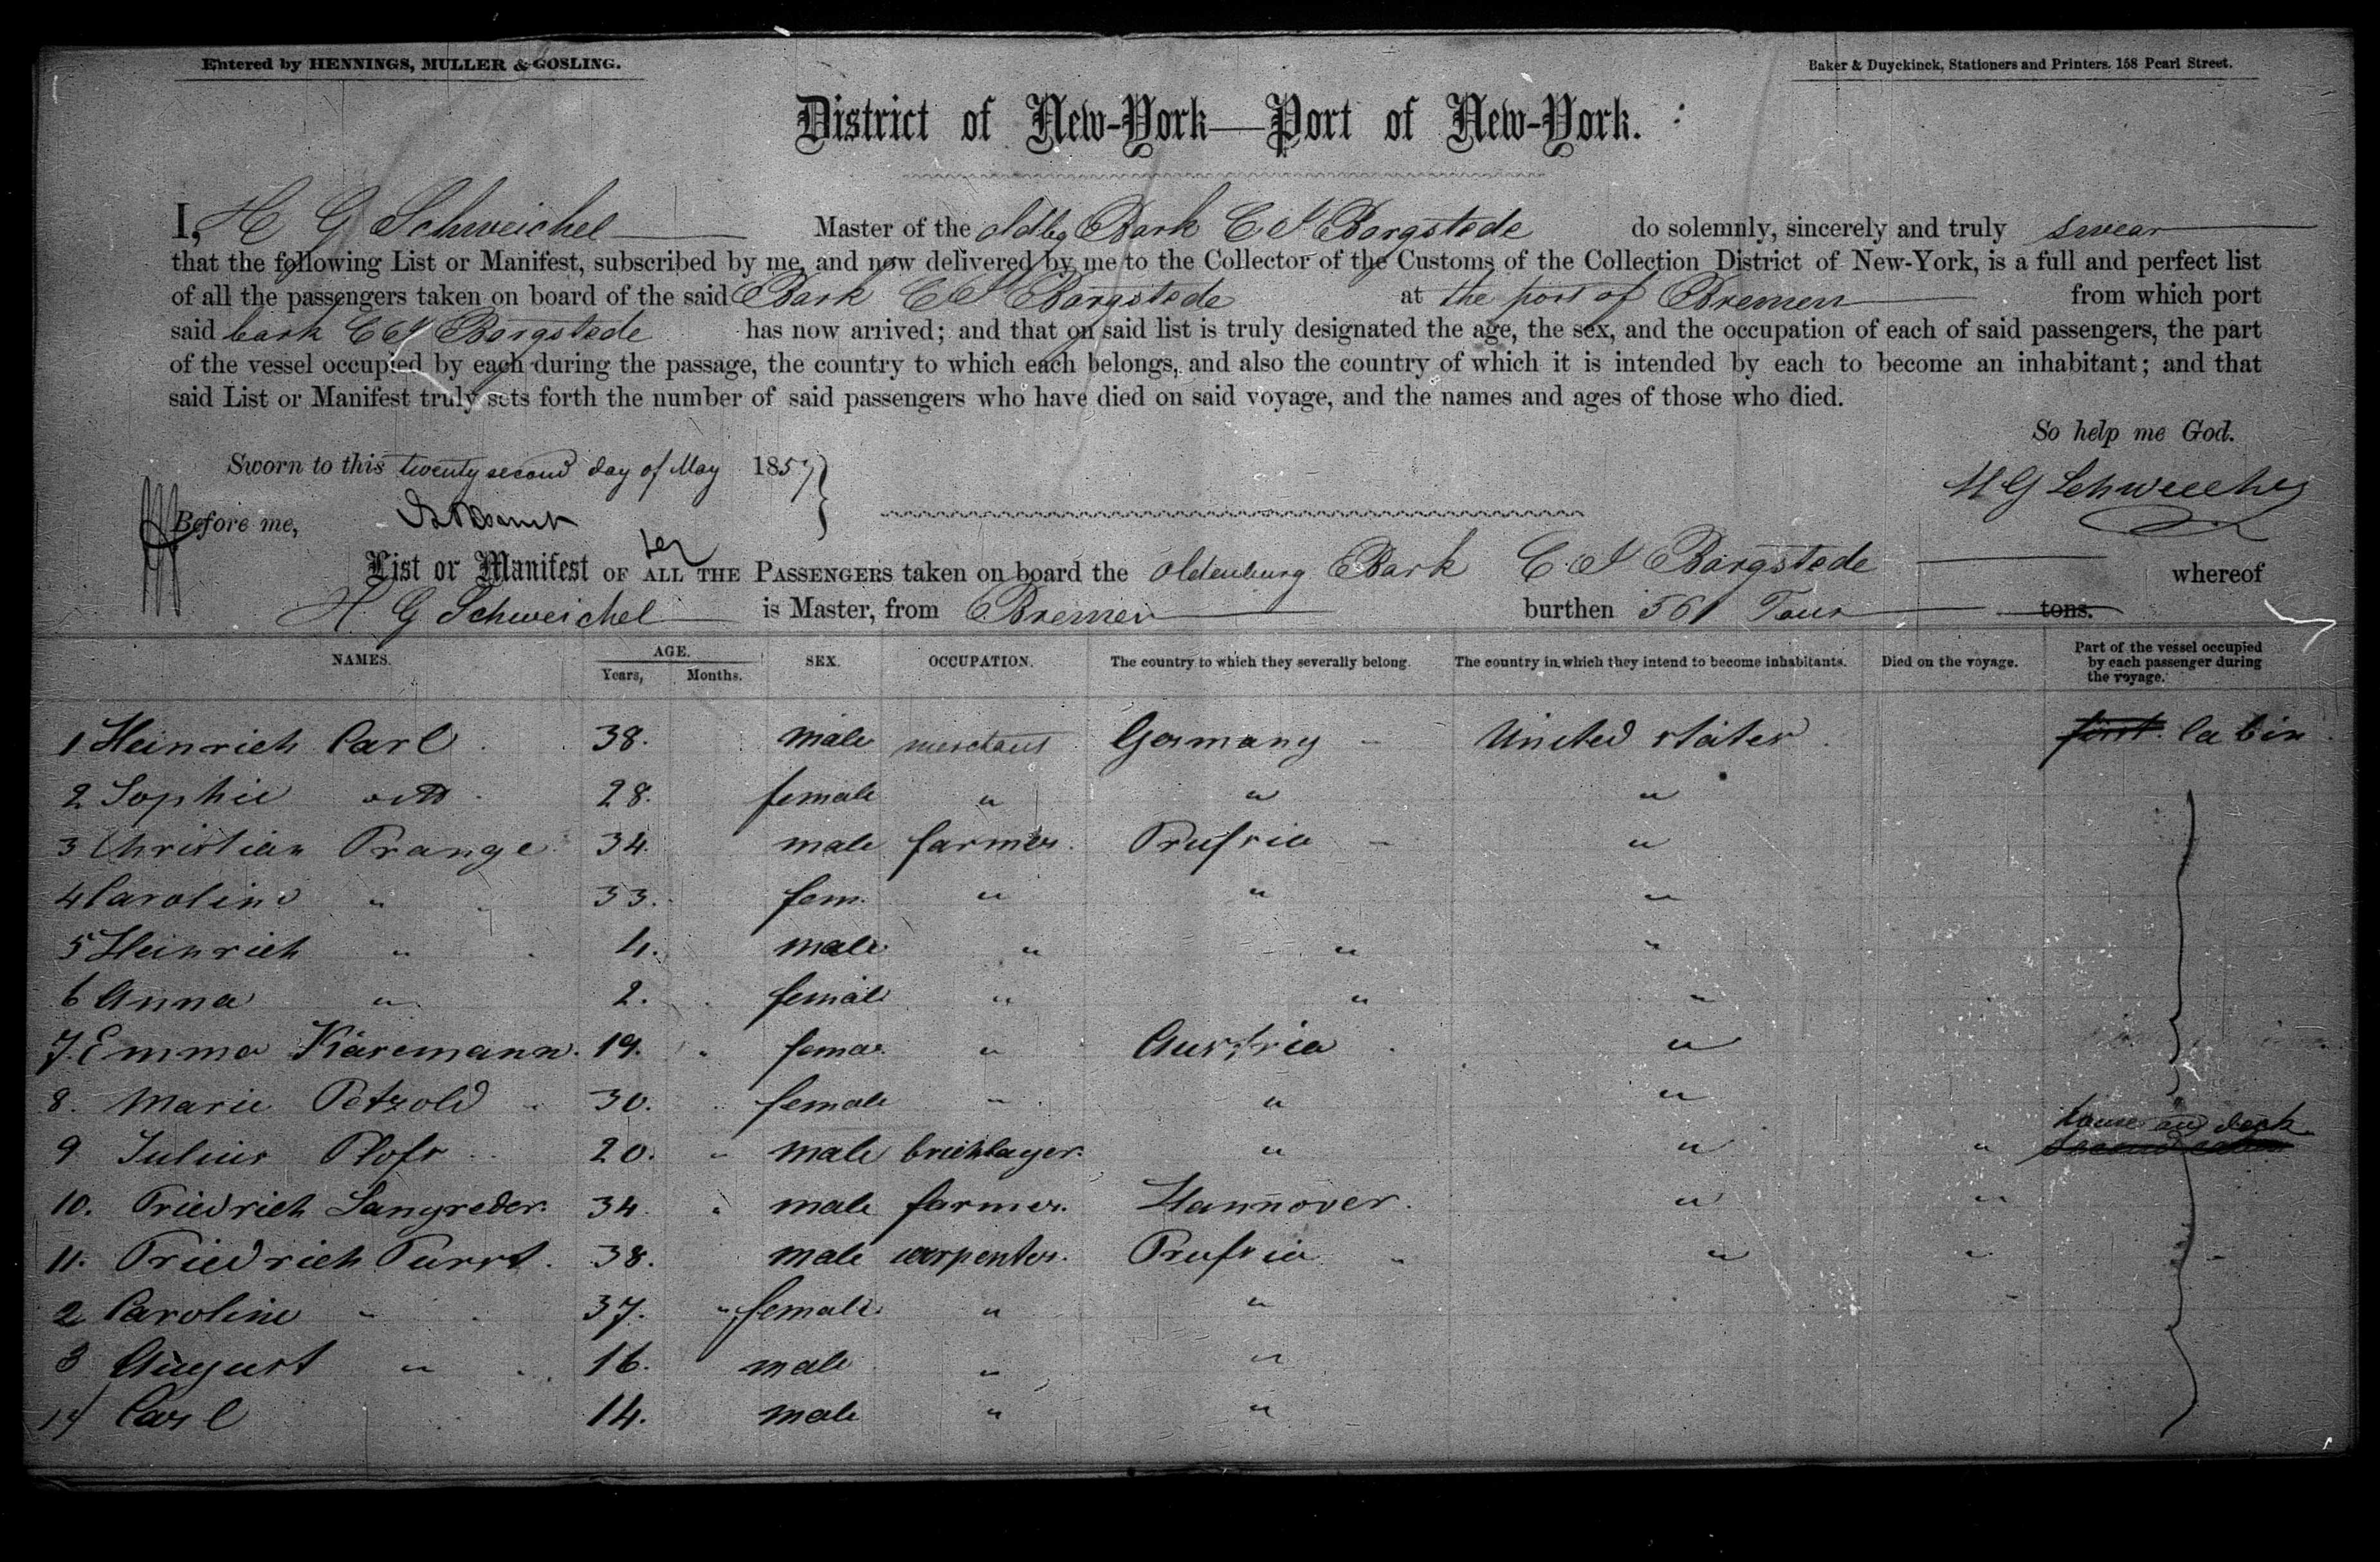 Entered by HENNINGS, MULLER & GOSLING.
Baker & Duyckinck, Stationers and Printers. 158 Pearl Street.
District of New-York—Port of New-York.
I, H G Schweichel Master of the oldbg Bark C J Borgstede do solemnly, sincerely and truly swear
that the following List or Manifest, subscribed by me, and now delivered by me to the Collector of the Customs of the Collection District of New-York, is a full and perfect list
of all the passengers taken on board of the said Bark C J Borgstede at the port of Bremen from which port
said bark C J Borgstede has now arrived; and that on said list is truly designated the age, the sex, and the occupation of each of said passengers, the part
of the vessel occupied by each during the passage, the country to which each belongs, and also the country of which it is intended by each to become an inhabitant; and that
said List or Manifest truly sets forth the number of said passengers who have died on said voyage, and the names and ages of those who died.
So help me God.
Sworn to this twenty second day of May 1857
H G Schweichel
Before me,
List or Manifest OF ALL THE PASSENGERS taken on board the Oldenburg Bark C. J Borgstede whereof
H G Schweichel is Master, from Bremen burthen 561 Tons tons.
NAMES. AGE. Years, Months. SEX. OCCUPATION. The country to which they severally belong. The country in which they intend to become inhabitants. Died on the voyage. Part of the vessel occupied by each passenger during the voyage.
1 Heinrich Carl 38. male merchant Germany United states first Cabin
2 Sophie 28. female " " "
3 Christian Prange 34. male farmer. Prussia "
4 Caroline " 33. fem. " " "
5 Heinrich " 4. male " " "
6 Anna " 2. female " " "
7. Emma Karemann. 19. female " Austria "
8. Marie Petzold 30. female " " "
9 Julius 20. male bricklayer. " " " house on deck second cabin
10. Friedrich Langreder. 34. " male farmer. Hannover. " "
11. Friedrich 38. male carpenter. Prussia " " "
2 Caroline " 37. " female " "
3 August " 16. male " "
14 Carl 14. male " "